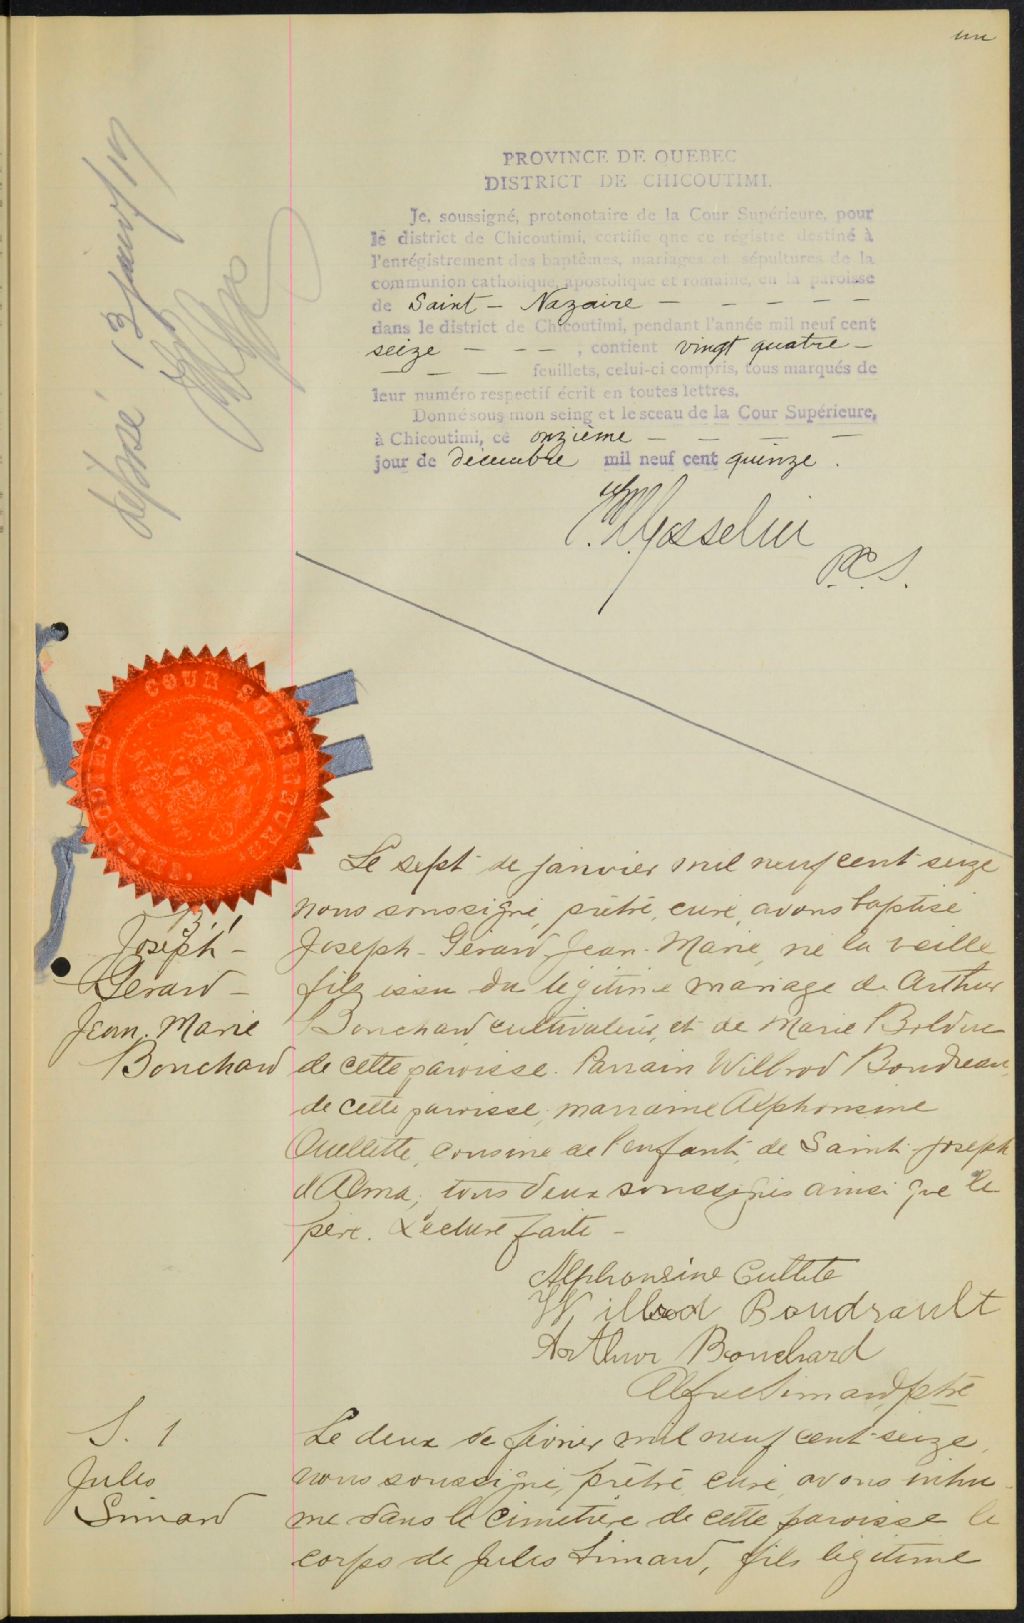 un
déposé 13 janv/17
PROVINCE DE QUEBEC
DISTRICT DE CHICOUTIMI.
Je, soussigné, protonotaire de la Cour Supérieure, pour
le district de Chicoutimi, certifie que ce régistre destiné à
l'enrégistrement des baptêmes, mariages et sépultures de la
communion catholique, apostolique et romaine, en la paroisse
de Saint - Nazaire - - - - - -
dans le district de Chicoutimi, pendant l'année mil neuf cent
seize - - - , contient vingt quatre -
- - - feuillets, celui-ci compris, tous marqués de
leur numéro respectif écrit en toutes lettres.
Donné sous mon seing et le sceau de la Cour Supérieure,
à Chicoutimi, ce onzième - - - -
jour de décembre mil neuf cent quinze.
P.C.S.
COUR SUPERIEURE
CHICOUTIMI
B. 1
Joseph -
Gérard -
Jean-Marie
Bouchard
Le sept de janvier mil neuf cent seize
nous soussigné, prêtre, curé, avons baptisé
Joseph-Gérard-Jean-Marie, né la veille
fils issu du légitime mariage de Arthur
Bouchard cultivateur, et de Marie Bolduc
de cette paroisse. Parrain Wilbrod Boudreau,
de cette paroisse, marraine Alphonsine
Ouellette, cousine de l'enfant, de Saint-Joseph
d'Alma, tous deux soussignés ainsi que le
père. Lecture faite -
Alphonsine Oullette
Willbrod Boudrault
Arthur Bouchard
Alfred Simard, ptre
S. 1
Jules
Simard
Le deux de février mil neuf cent seize,
nous soussigné, prêtre, curé, avons inhu-
mé dans le cimetière de cette paroisse le
corps de Jules Simard, fils légitime